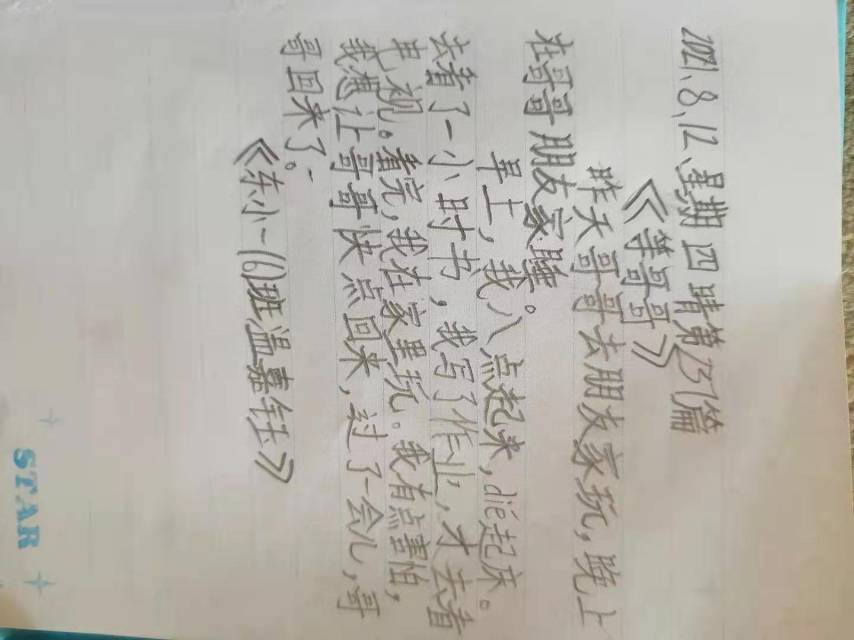 2021.8.12、星期四晴第251篇
《等哥哥》
昨天哥哥去朋友家玩，晚上
在哥哥朋友家睡。
早上，我八点起来，diē起床。
去看了一小时书，我写了作业，才去看
电视。看完，我在家里玩。我有点害怕，
我想让哥哥快点回来，过了一会儿，哥
哥回来了。
《东小一(6)班温嘉钰》
STAR